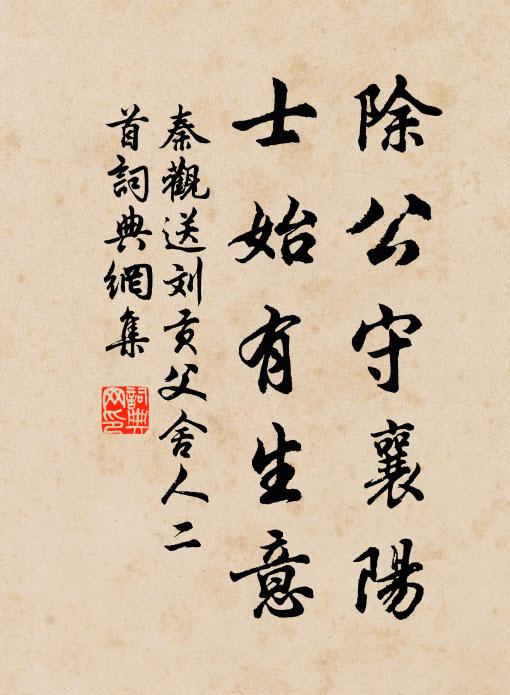 除公守襄陽
士始有生意
秦觀送刘贡父舍人二
首詞典網集
詞典网印